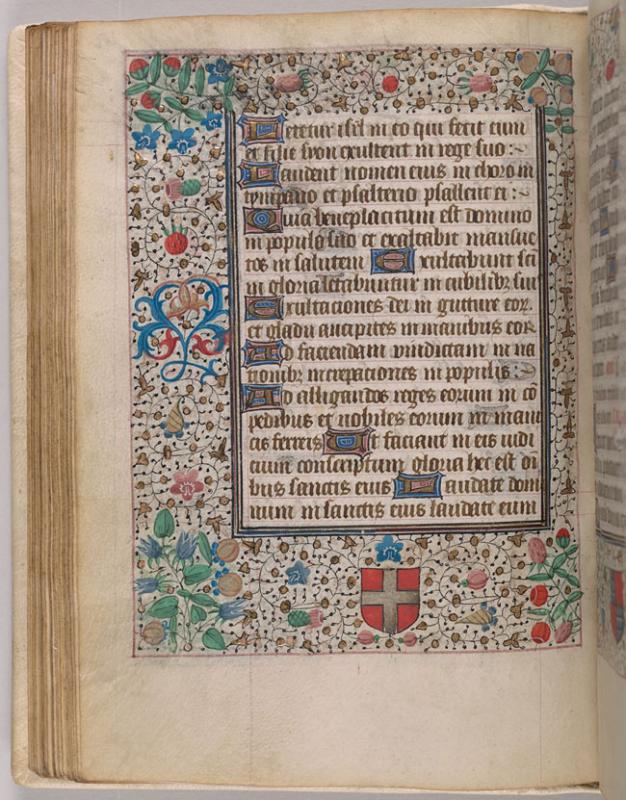 Letetur isrl in eo qui fecit eum
et filie syon exultent in rege suo :~
Laudent nomen eius in choro in
tympano et psalterio psallent ei :~
Quia beneplacitum est domino
in populo suo et exaltabit mansue
tos in salutem Exultabunt sci
in gloria letabuntur in cubilibz suis
Exultaciones dei in guture eoz.
et gladii ancipites in manibus eoz
Ad faciendam vindictam in na
tionibz increpationes in populis :~
Ad alligandos reges eorum in cō
pedibus et nobiles eorum in mani
cis ferreis Ut faciant in eis iudi
cium conscriptum gloria hec est oi
bus sanctis eius Laudate dom
inum in sanctis eius laudate eum